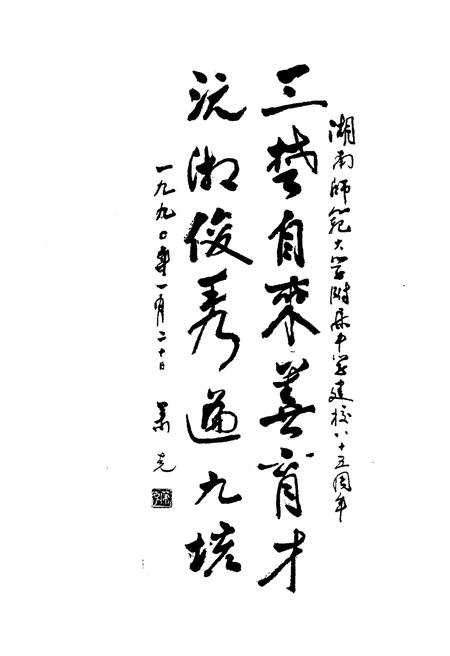 湖南师范大学附属中学建校八十五周年
三楚自来善育才
沅湘俊秀遍九垓
一九九〇年一月二十日
萧克